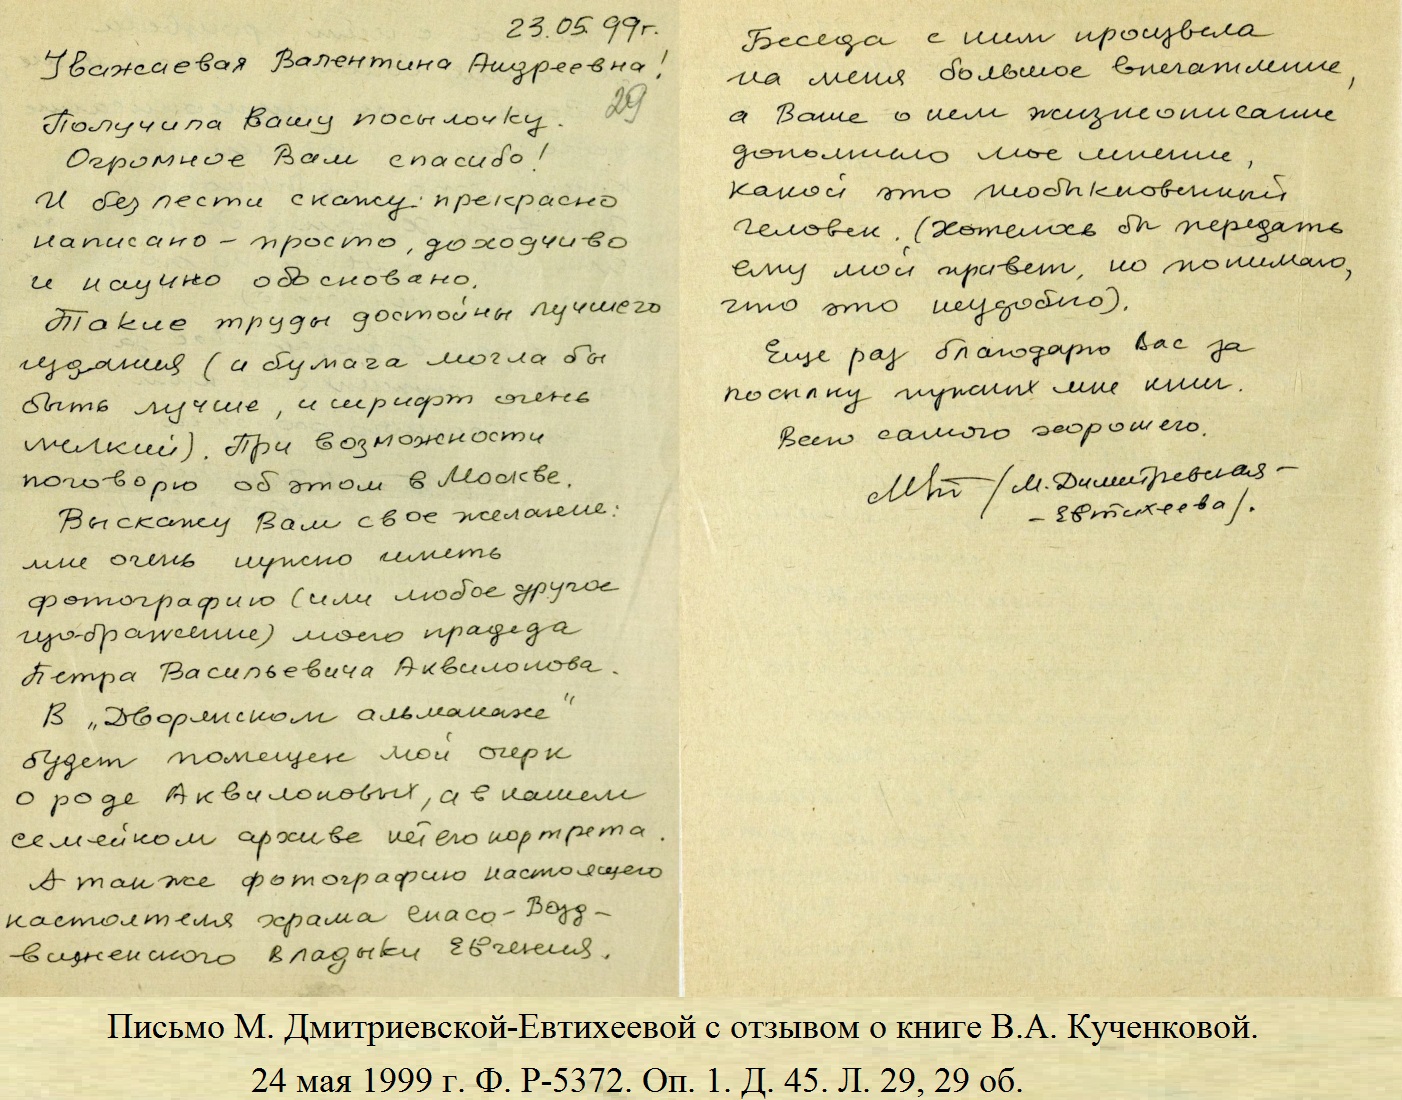 23.05.99г.
Уважаевая Валентина Андреевна!
29
Получила Вашу посылочку.
Огромное Вам спасибо!
И без лести скажу: прекрасно
написано – просто, доходчиво
и научно обосновано.
Такие труды достойны лучшего
издания (и бумага могла бы
быть лучше, и шрифт очень
мелкий). При возможности
поговорю об этом в Москве.
Выскажу Вам свое желание:
мне очень нужно иметь
фотографию (или любое другое
изображение) моего прадеда
Петра Васильевича Аквилонова.
В „Дворянском альманахе"
будет помещен мой очерк
о роде Аквилоновых, а в нашем
семейном архиве нет его портрета.
А также фотографию настоящего
настоятеля храма Спасо-Возд-
-виженского Владыки Евгения.
Беседа с ним произвела
на меня большое впечатление,
а Ваше о нем жизнеописание
дополнило мое мнение,
какой это необыкновенный
человек. (Хотелось бы передать
ему мой привет, но понимаю,
что это неудобно).
Еще раз благодарю Вас за
посылку нужных мне книг.
Всего самого хорошего.
/М. Димитревская-
-Евтихеева/.
Письмо М. Дмитриевской-Евтихеевой с отзывом о книге В.А. Кученковой.
24 мая 1999 г. Ф. Р-5372. Оп. 1. Д. 45. Л. 29, 29 об.